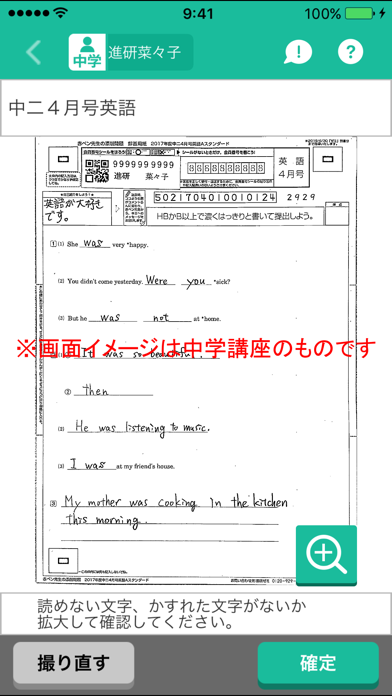 9:41
100%
中学
進研菜々子
中二４月号英語
赤ペン先生の添削問題 解答用紙 2017年度中２4月号英語Aスタンダード
9999999999
進研 菜々子
8888888888
英語
4月号
英語が大好き
です。
502170401001012４ 2929
HBかB以上で濃くはっきりと書いて提出しよう。
1 (1) She was very *happy.
(2) You didn't come yesterday. Were you *sick?
(3) But he was not at *home.
※画面イメージは中学講座のものです
It was so beautiful.
② then
(2) He was listening to music.
(3) I was at my friend's house.
3 My mother was cooking in the kitchen
this morning.
赤ペン先生の添削問題 2017年度中２4月号英語Aスタンダード
読めない文字、かすれた文字がないか
拡大して確認してください。
撮り直す
確定